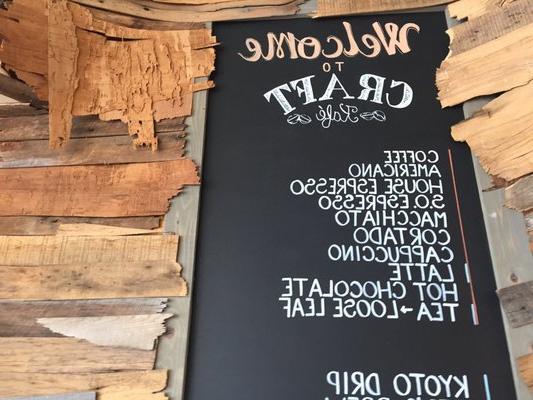 Welcome
TO
CRAFT
Kafé
COFFEE
AMERICANO
HOUSE ESPRESSO
S.O. ESPRESSO
MACCHIATO
CORTADO
CAPPUCCINO
LATTE
HOT CHOCOLATE
TEA → LOOSE LEAF
KYOTO DRIP